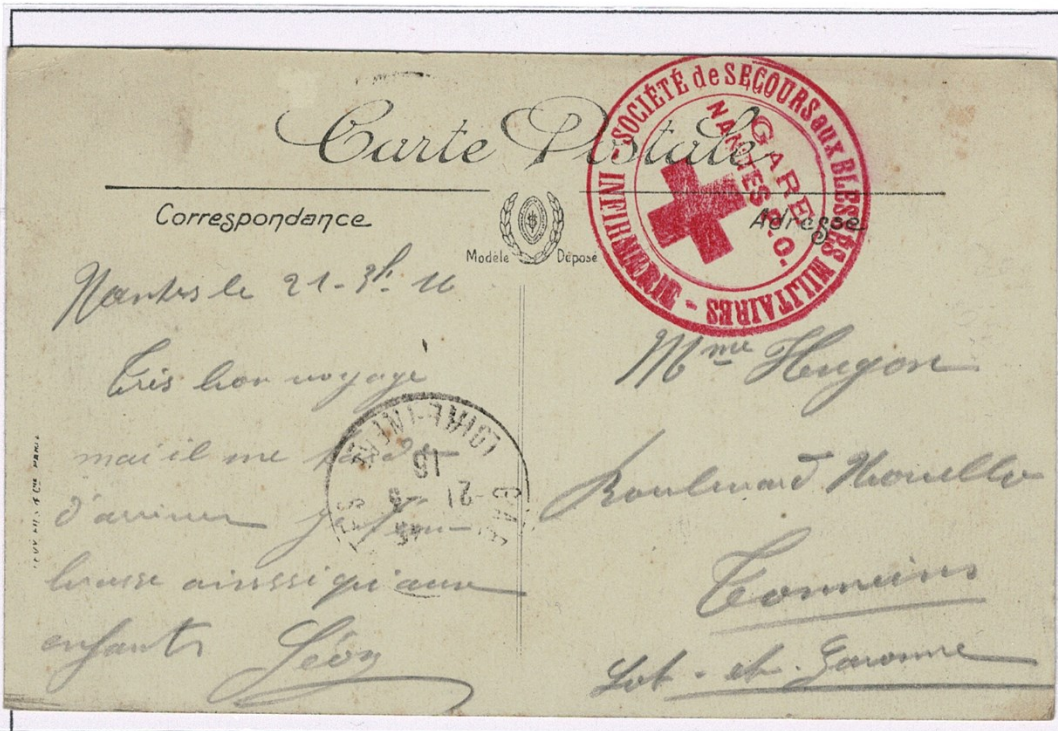 Carte Postale
SOCIÉTÉ de SECOURS aux BLESSÉS MILITAIRES - INFIRMERIE -
GARE
NANTES P.O.
Correspondance
Adresse
Modèle Déposé
Nantes le 21-3bre 16
Très bon voyage
mai il me tarde
d'arriver je t'em-
brasse ainssi qu'aux
enfants Léon
LOIRE-INFRE
GARE
21 - 9
16
Mme Hugon
Boulevard
Tonneins
Lot-et-Garonne